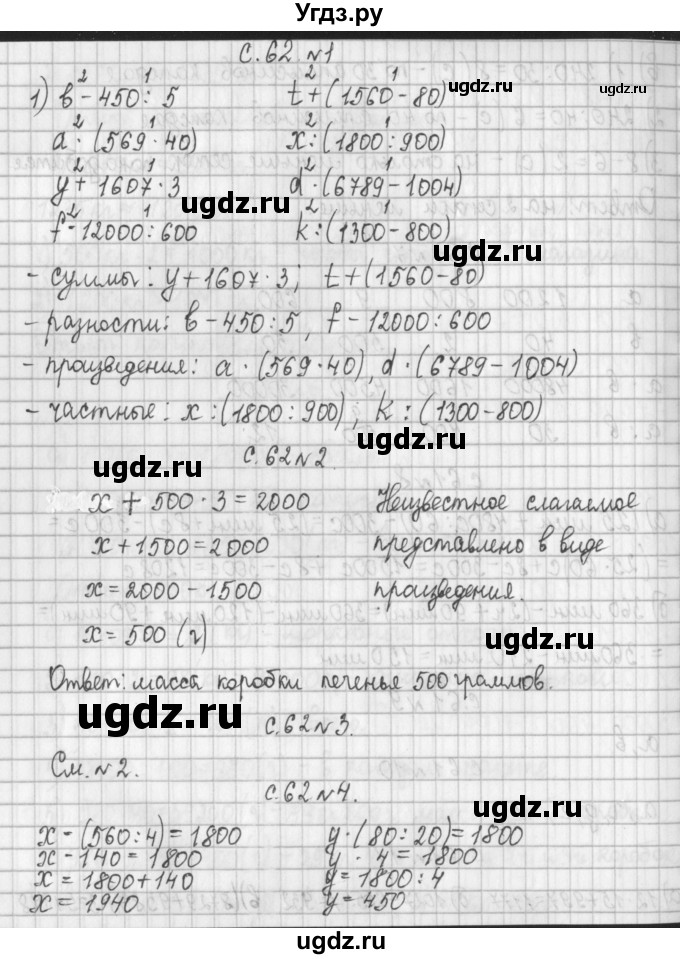 Угдз.ру
с.62 №1
2 1 2 1
1) в - 450 : 5 t + (1560 - 80)
2 1 2 1
a · (569 · 40) x : (1800 : 900)
2 1 2 1
y + 1607 · 3 d · (6789 - 1004)
2 1 2 1
f - 12000 : 600 k : (1300 - 800)
- суммы: y + 1607 · 3; t + (1560 - 80)
- разности: в - 450 : 5, f - 12000 : 600
- произведения: a · (569 · 40), d · (6789 - 1004)
- частные: x : (1800 : 900), k : (1300 - 800)
с.62 №2.
x + 500 · 3 = 2000 Неизвестное слагаемое
x + 1500 = 2000 представлено в виде
x = 2000 - 1500 произведения.
x = 500 (г)
Ответ: масса коробки печенья 500 граммов.
с.62 №3.
См. №2.
с.62 №4.
x - (560 : 4) = 1800 y · (80 : 20) = 1800
x - 140 = 1800 y · 4 = 1800
x = 1800 + 140 y = 1800 : 4
x = 1940 y = 450
ugdz.ru
ugdz.ru
ugdz.ru
ugdz.ru
ugdz.ru
ugdz.ru
ugdz.ru
ugdz.ru
ugdz.ru
ugdz.ru
ugdz.ru
ugdz.ru